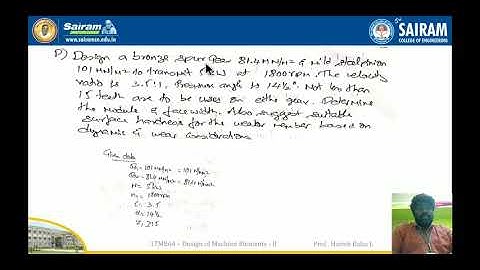 Sairam
www.sairamce.edu.in
SAIRAM
COLLEGE OF ENGINEERING
P) Design a bronze spur gear 81.4 MN/m² & mild steel pinion
101 MN/m² to transmit 5kW at 1800rpm. The velocity
ratio is 3.5:1. Pressure angle is 14½°. Not less than
15 teeth are to be used on either gear. Determine
the module & face width. Also suggest suitable
surface hardness for the weaker member based on
dynamic & wear considerations
Given data
= 101 MN/m² = 101 N/mm²
= 81.4 MN/m² = 81.4 N/mm²
= 5kW
= 1800rpm
= 3.5
= 14½
15
- Design of Machine Elements - II
Prof. Harish Babu L